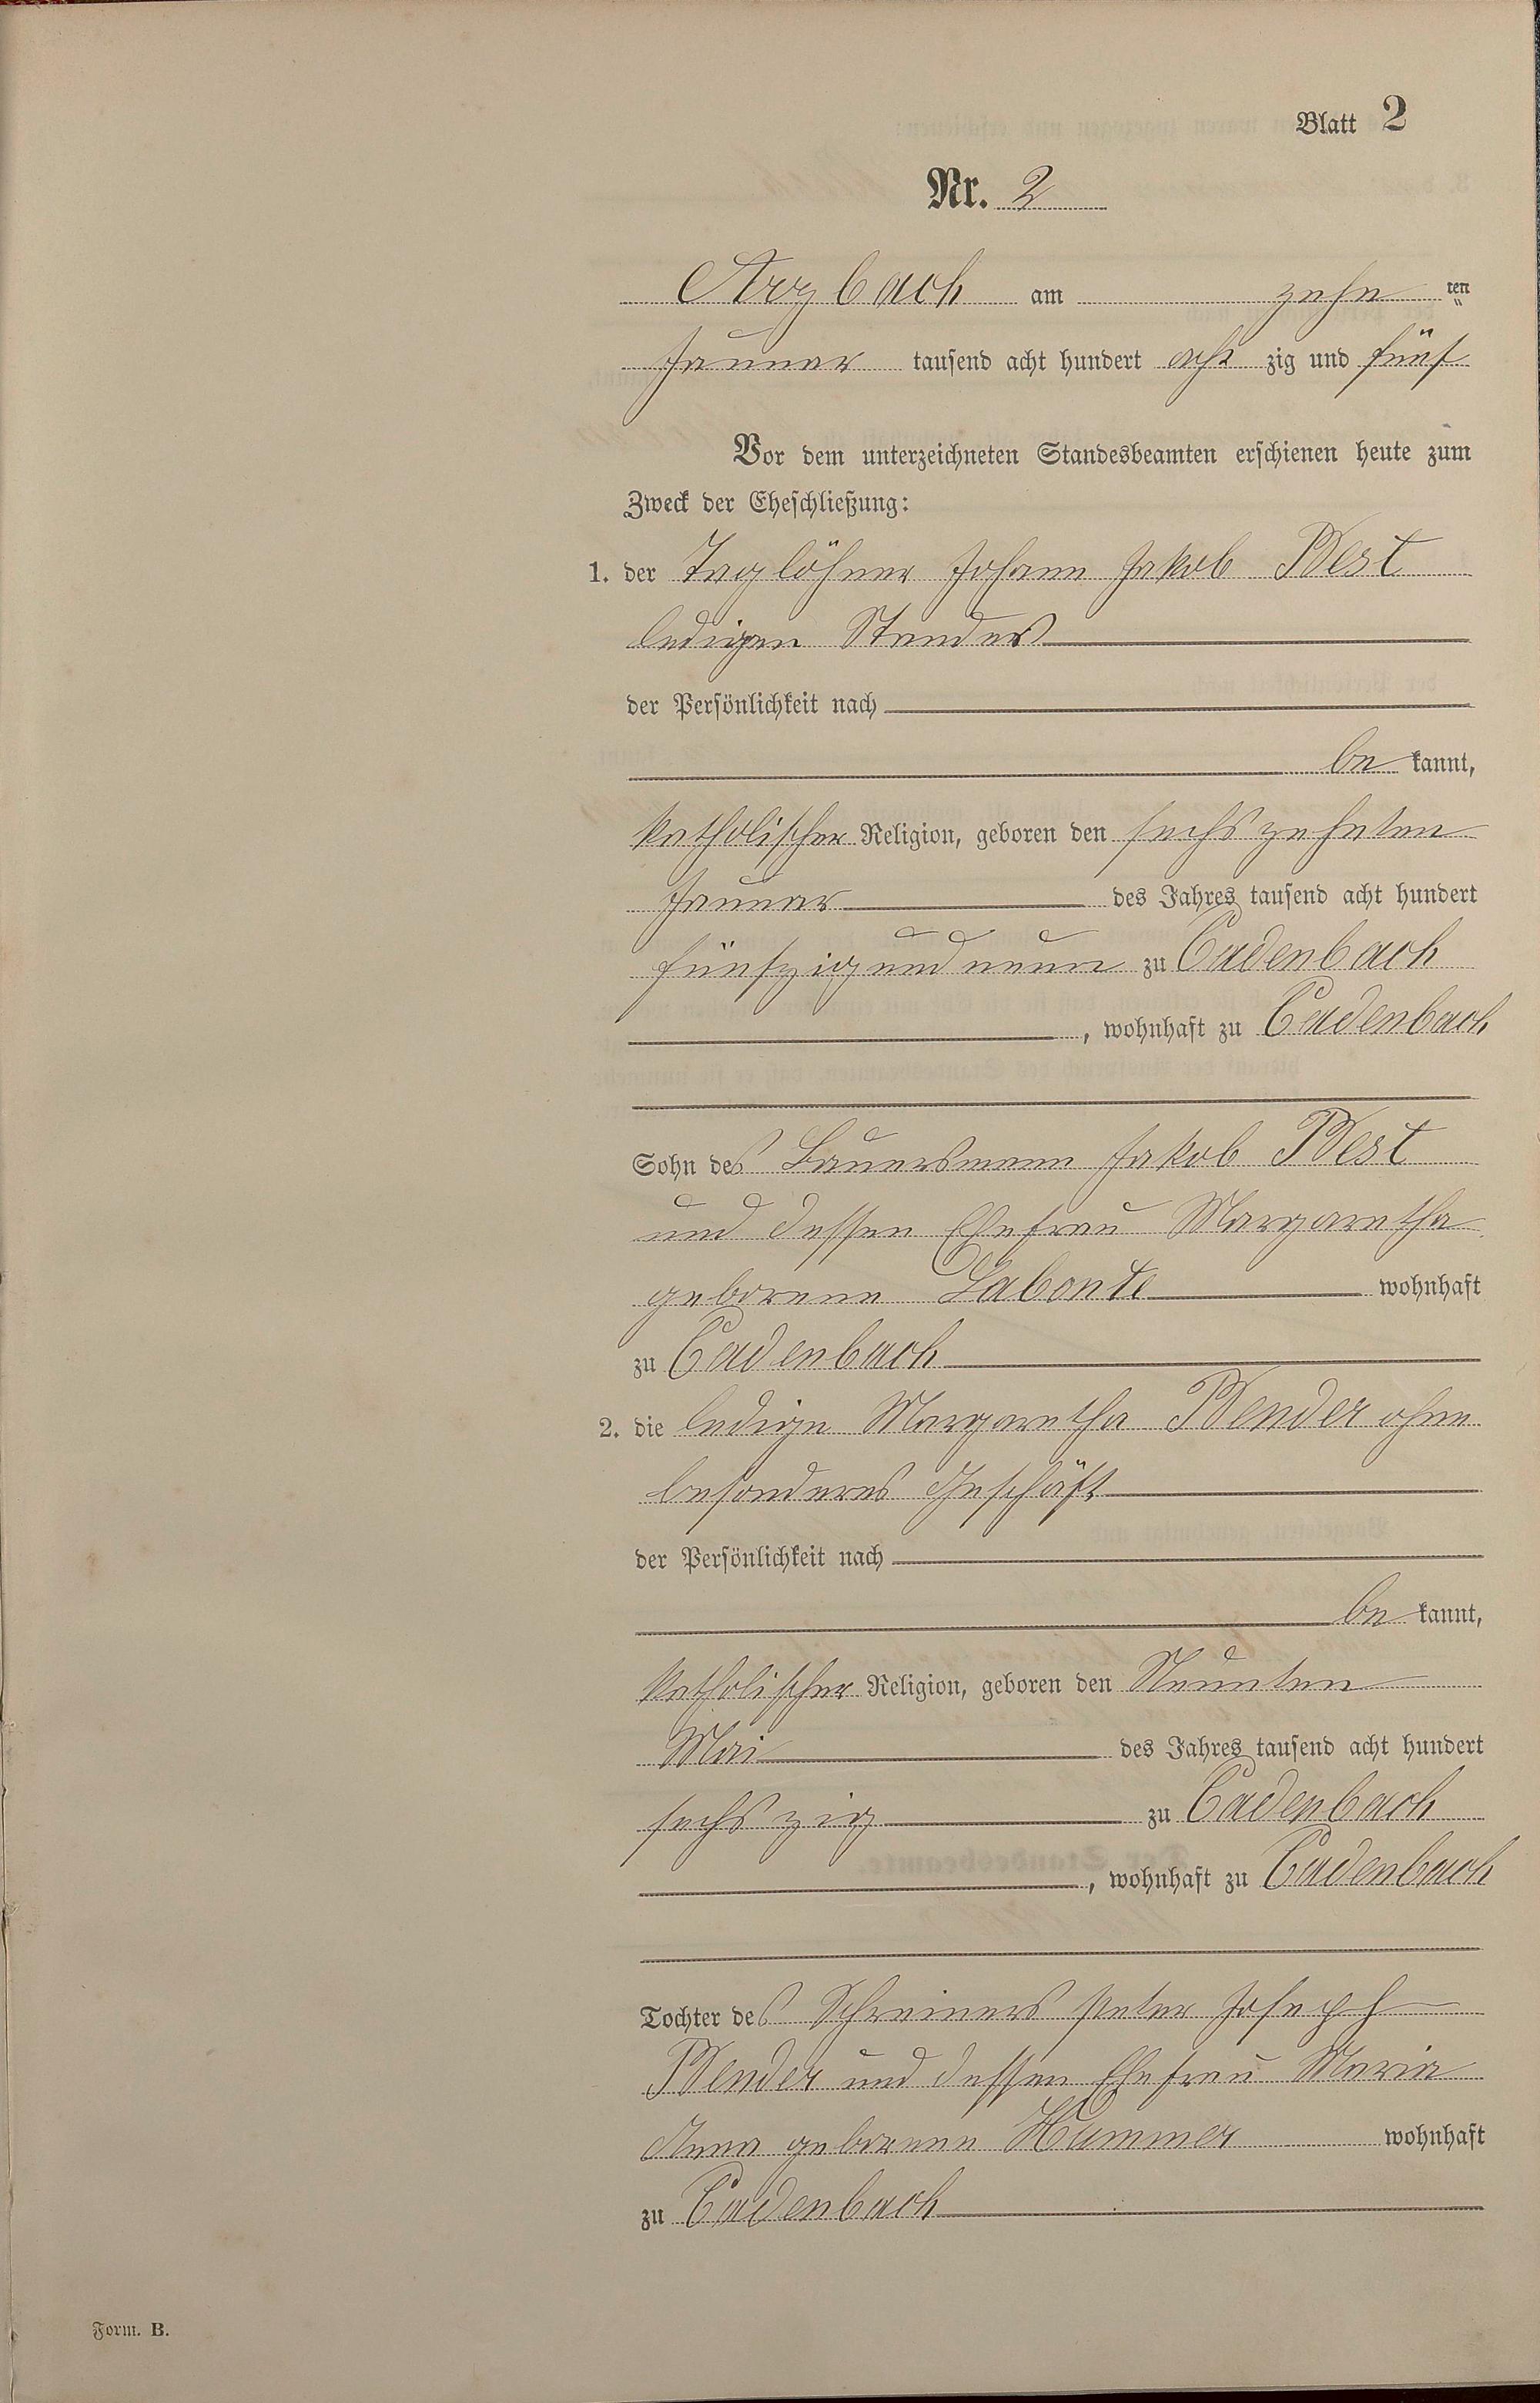 Blatt 2
Nr. 2
Arzbach am zehn ten
Januar tausend acht hundert acht zig und fünf
Vor dem unterzeichneten Standesbeamten erschienen heute zum
Zweck der Eheschließung:
1. der Taglöhner Johann Jakob Best
ledigen Standes
der Persönlichkeit nach
be kannt,
katholischer Religion, geboren den sechszehnten
Januar des Jahres tausend acht hundert
fünfzig und neun zu Cadenbach
, wohnhaft zu Cadenbach
Sohn des Bauersmann Jakob Best
und dessen Ehefrau Margaretha
geborene Labonte wohnhaft
zu Cadenbach
2. die ledige Margaretha Bender ohne
besonderes Geschäft
der Persönlichkeit nach
be kannt,
katholischer Religion, geboren den Neunten
Mai des Jahres tausend acht hundert
sechszig zu Cadenbach
, wohnhaft zu Cadenbach
Tochter des Schreiners Peter Joseph
Bender und dessen Ehefrau Maria
Anna geborene Hummer wohnhaft
zu Cadenbach
Form. B.